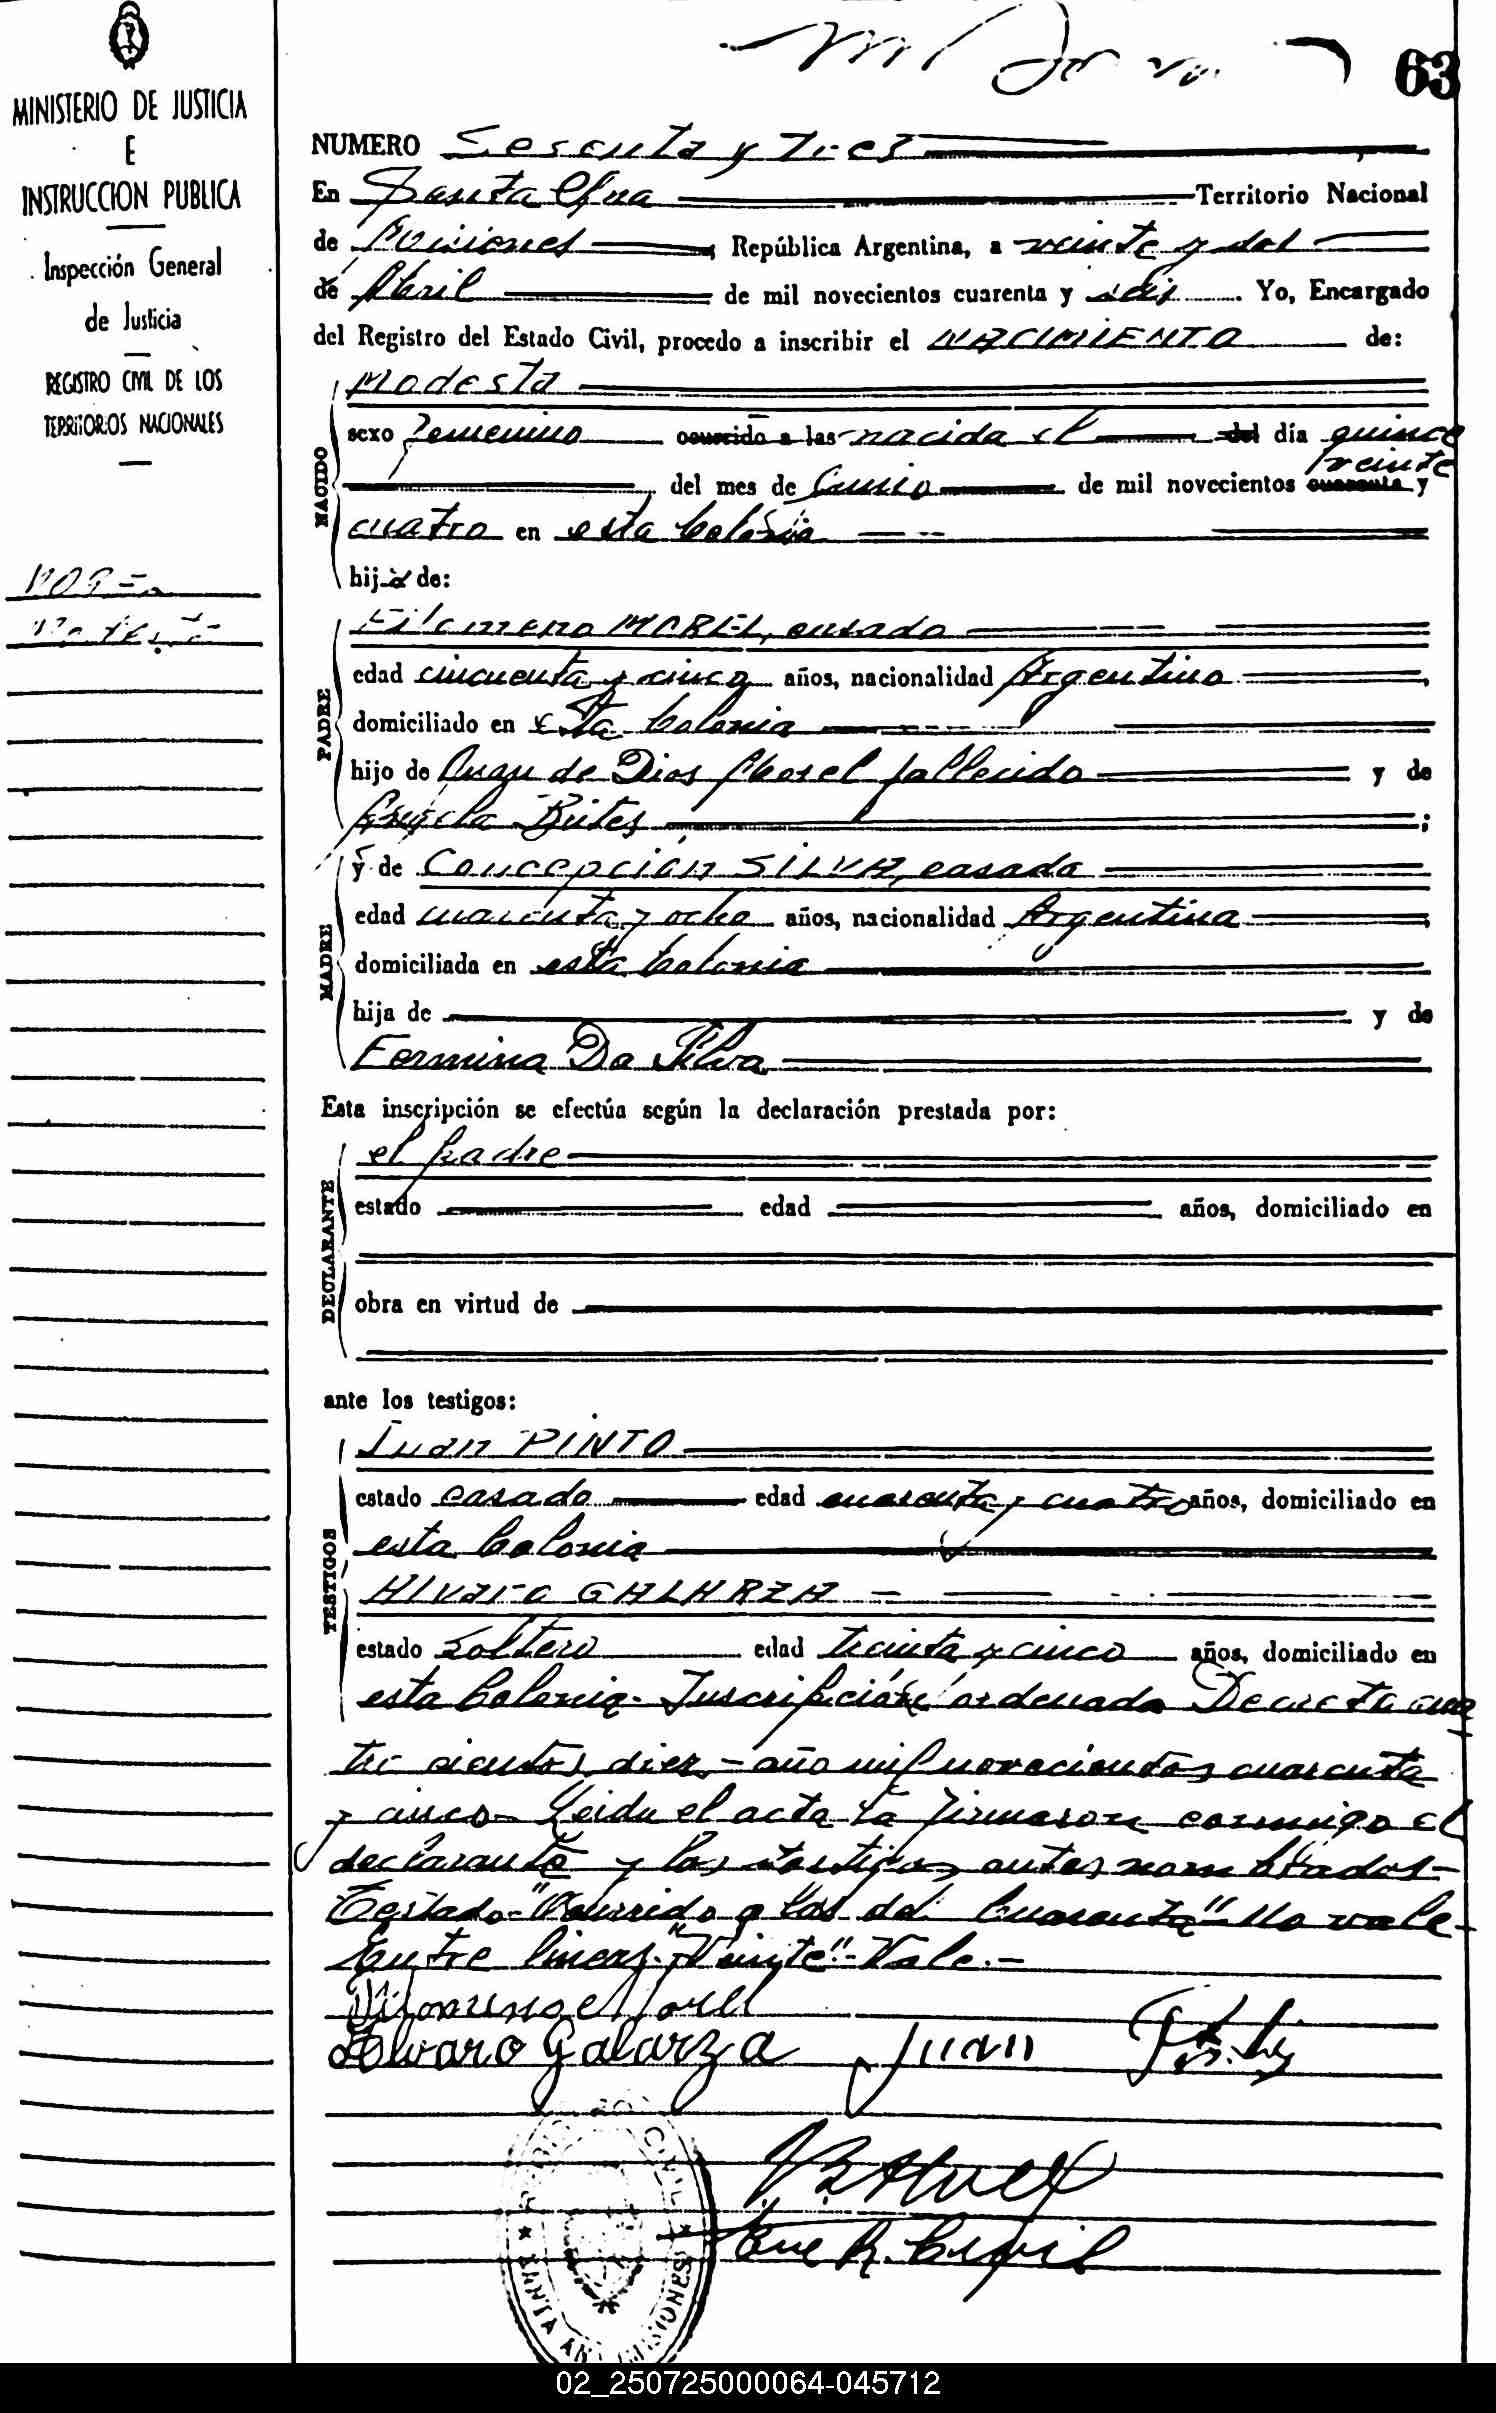 63
MINISTERIO DE JUSTICIA
E
INSTRUCCION PUBLICA
Inspección General
de Justicia
REGISTRO CIVIL DE LOS
TERRITORIOS NACIONALES
NUMERO Sesenta y Tres
En Santa Ana Territorio Nacional
de Misiones, República Argentina, a veinte y dos
de Abril de mil novecientos cuarenta y seis. Yo, Encargado
del Registro del Estado Civil, procedo a inscribir el NACIMIENTO de:
Modesta
NACIDO
sexo Femenino ocurrido a las nacida el del día quince
veinte
del mes de Junio de mil novecientos cuarenta y
cuatro en esta Colonia
hija de:
MOREL
Modesta
Filomeno MOREL, casado
PADRE
edad cincuenta y cinco años, nacionalidad Argentino,
domiciliado en esta Colonia
hijo de Juan de Dios Morel fallecido y de
Angela Brites;
y de Concepción SILVA, casada
MADRE
edad cuarenta y ocho años, nacionalidad Argentina,
domiciliada en esta Colonia
hija de y de
Fermina Da Silva
Esta inscripción se efectúa según la declaración prestada por:
el padre
DECLARANTE
estado edad años, domiciliado en
obra en virtud de
ante los testigos:
Juan PINTO
TESTIGOS
estado casado edad cuarenta y cuatro años, domiciliado en
esta Colonia
Alvaro GALARZA
estado Soltero edad treinta y cinco años, domiciliado en
esta Colonia. Inscripción ordenada Decreto cua
tro cientos diez - año mil novecientos cuarenta
y cinco - Leida el acta la firmaron conmigo el
declarante y los testigos antes nombrados -
Testado - "Ocurrido a las del Cuarenta" - No vale -
Entre lineas. "Veinte" - Vale. -
Filomeno Morel
Alvaro Galarza Juan Pinto
Enc R. Civil
CIVIL
SANTA ANA MISIONES
02_250725000064-045712